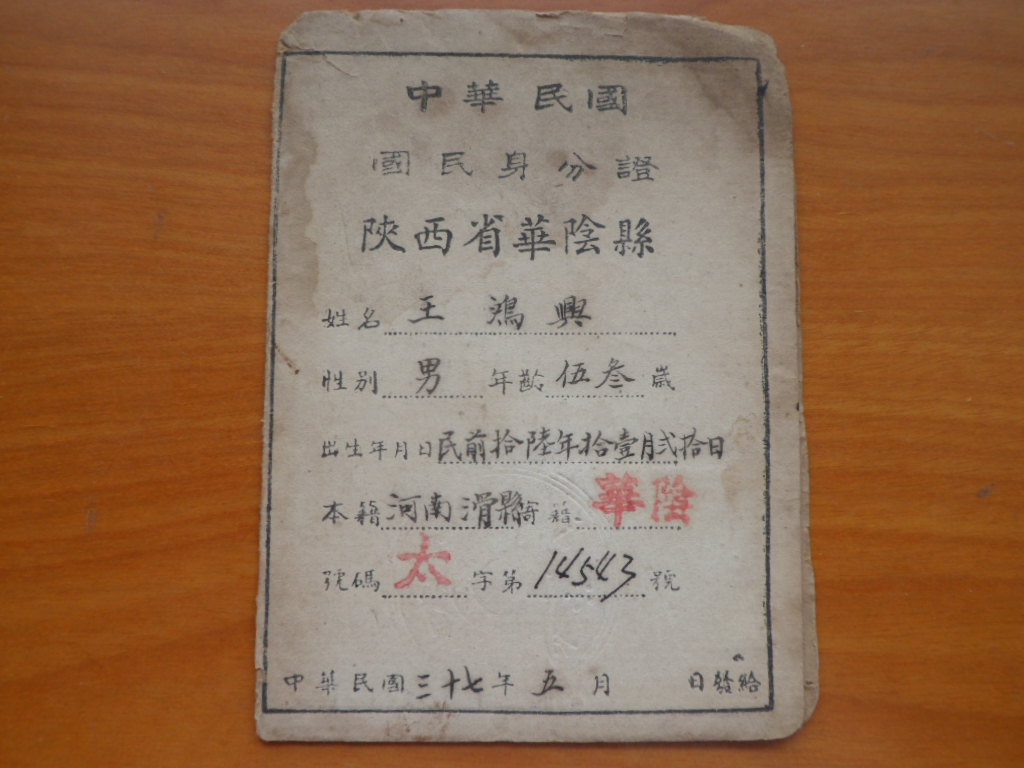 中華民國
國民身分證
陝西省華陰縣
姓名 王鴻興
性別 男 年齡 伍叁 歲
出生年月日 民前拾陸年拾壹月弍拾日
本籍 河南滑縣 寄籍 華陰
號碼 太 字第 14543 號
中華民國三十七年五月 日發給